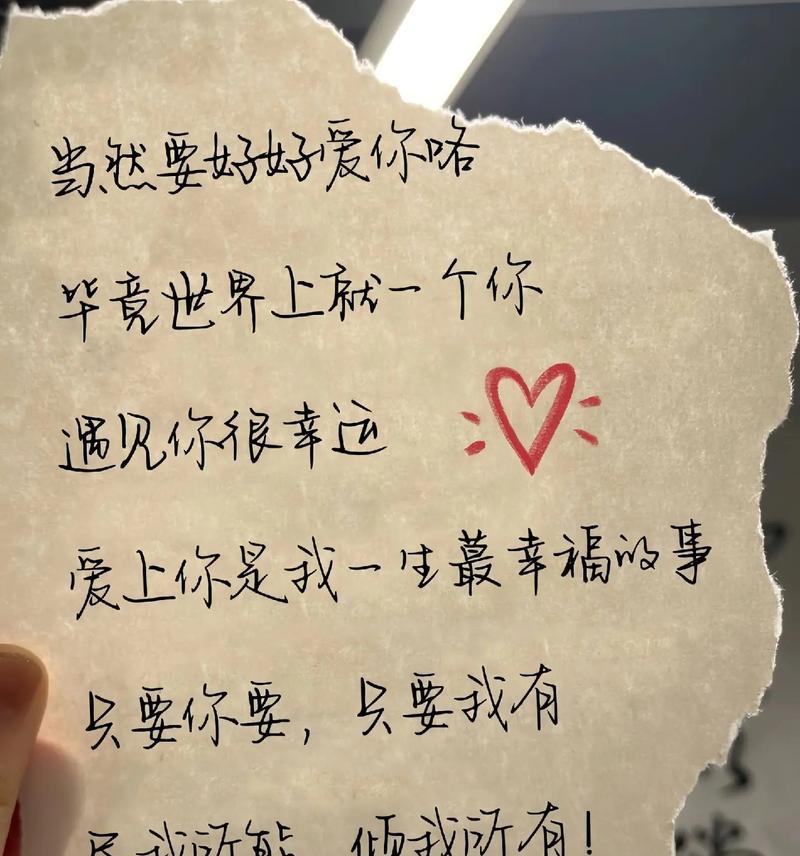 当然要好好爱你咯
毕竟世界上就一个你
遇见你很幸运
爱上你是我一生最幸福的事
只要你要，只要我有
尽我所能 倾我所有！